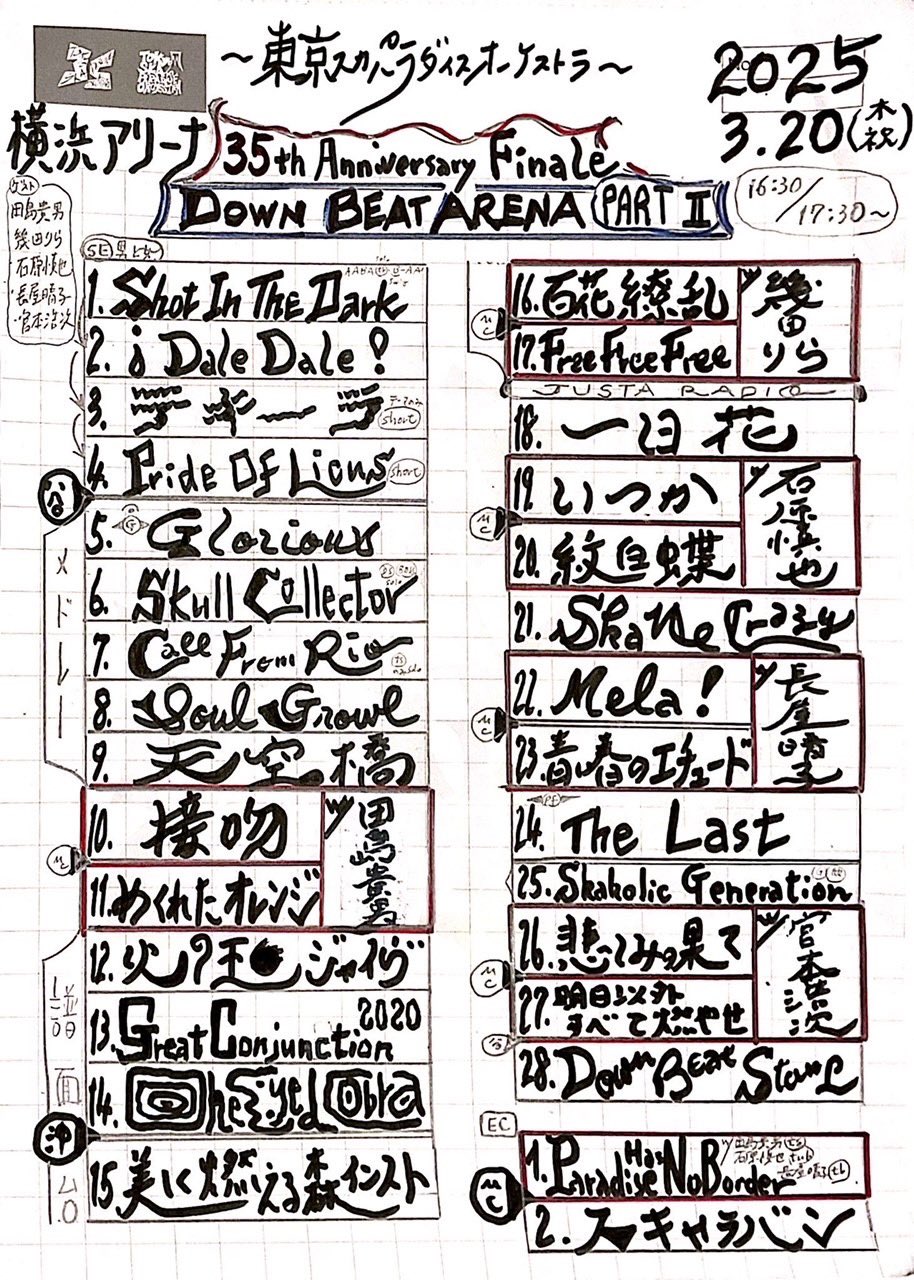 ~東京スカパラダイスオーケストラ~
2025
3.20(木祝)
横浜アリーナ
35th Anniversary Finale
DOWN BEAT ARENA PART II
16:30/17:30~
ゲスト
田島貴男
幾田りら
石原慎也
・長屋晴子
・宮本浩次
SE 男と女
1. Shot In The Dark
2. ¡ Dale Dale !
3. テキーラ テーマのみ short
4. Pride Of Lions short
谷
メドレー
5. Glorious G
6. Skull Collector
7. Call From Rio
8. Soul Growl
9. 天空橋
MC
10. 接吻
11. めくれたオレンジ
w/ 田島貴男
12. 火の玉ジャイヴ
13. Great Conjunction 2020
14. One Eyed Cobra
沖
15 美しく燃える森 インスト
MC
16. 百花繚乱
17. Free Free Free
w/ 幾田りら
JUSTA RADIO
18. 一日花
MC
19. いつか
20. 紋白蝶
w/ 石原慎也
21. Ska Me Crazy
MC
22. Mela !
23. 青春のエチュード
w/ 長屋晴子
24. The Last
25. Skaholic Generation
MC
26. 悲しみの果て
27. 明日以外すべて燃やせ
w/ 宮本浩次
谷
28. Down Beat Stomp
EC
1. Paradise Has No Border
w/ 田島貴男
石原慎也
長屋晴子(tb)
MC
2. スキャラバン